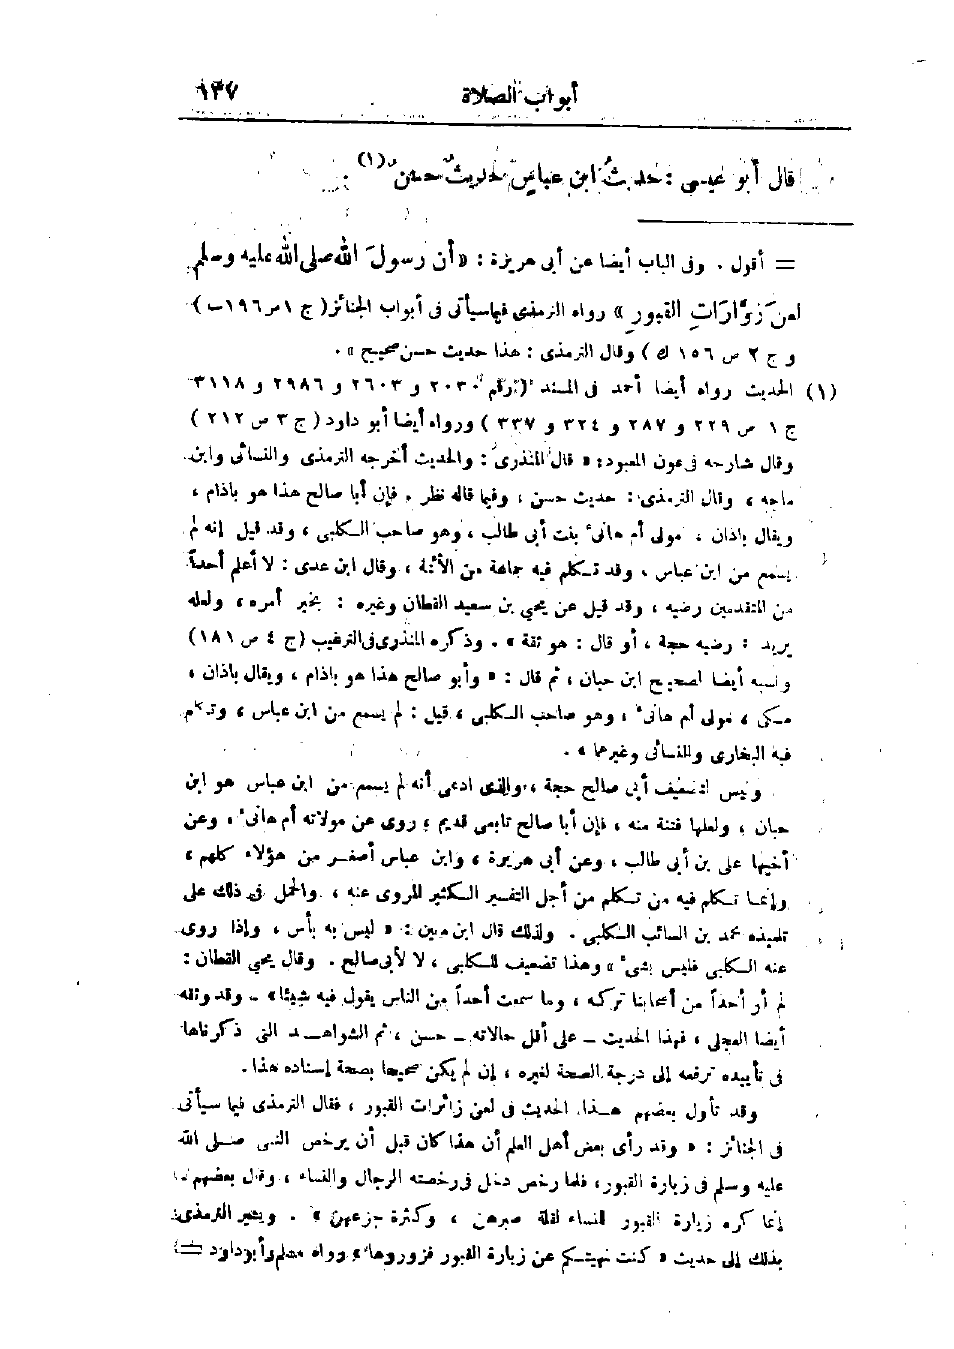 أبواب الصلاة ١٣٧
قال أبو عيسى : حديثُ ابن عباسٍ حديثٌ حسنٌ (١)
= أقول . وفى الباب أيضا عن أبى هريرة : « أن رسولَ اللهِ صلى الله عليه وسلم
لعن زوّارَاتِ القبورِ » رواه الترمذى فيما سيأتى فى أبواب الجنائز ( ج ١ ص ١٩٦ ب )
و ج ٢ ص ١٥٦ ك ) وقال الترمذى : هذا حديث حسن صحيح » .
(١) الحديث رواه أيضا أحمد فى المسند ( رقم ٢٠٣٠ و ٢٦٠٣ و ٢٩٨٦ و ٣١١٨
ج ١ ص ٢٢٩ و ٢٨٧ و ٣٢٤ و ٣٣٧ ) ورواه أيضا أبو داود ( ج ٣ ص ٢١٢ )
وقال شارحه فى عون المعبود : « قال المنذرى : والحديث أخرجه الترمذى والنسائى وابن
ماجه ، وقال الترمذى : حديث حسن ، وفيما قاله نظر . فإن أبا صالح هذا هو باذام ،
ويقال باذان ، مولى أم هانىء بنت أبى طالب ، وهو صاحب الكلبى ، وقد قيل إنه لم
يسمع من ابن عباس ، وقد تكلم فيه جماعة من الأئمة ، وقال ابن عدى : لا أعلم أحداً
من المتقدمين رضيه ، وقد قيل عن يحيى بن سعيد القطان وغيره : يخير أمره ، ولعله
يريد : رضيه حجة ، أو قال : هو ثقة » . وذكره المنذرى فى الترغيب ( ج ٤ ص ١٨١ )
ونسبه أيضا لصحيح ابن حبان ، ثم قال : « وأبو صالح هذا هو باذام ، ويقال باذان ،
مكى ، مولى أم هانىء ، وهو صاحب الكلبى ، قيل : لم يسمع من ابن عباس ، وتكلم
فيه البخارى والنسائى وغيرهما » .
وليس لتضعيف أبى صالح حجة ، والذى ادعى أنه لم يسمع من ابن عباس هو ابن
حبان ، ولعلها فتنة منه ، فإن أبا صالح تابعى قديم ، روى عن مولاته أم هانىء ، وعن
أخيها على بن أبى طالب ، وعن أبى هريرة ، وابن عباس أصغر من هؤلاء كلهم ،
وإنما تكلم فيه من تكلم من أجل التفسير الكثير المروى عنه ، والحمل فى ذلك على
تلميذه محمد بن السائب الكلبى . ولذلك قال ابن معين : « ليس به بأس ، وإذا روى
عنه الكلبى فليس بشىء » وهذا تضعيف للكلبى ، لا لأبى صالح . وقال يحيى القطان :
لم أر أحداً من أصحابنا تركه ، وما سمعت أحداً من الناس يقول فيه شيئا » - وقد وثقه
أيضا العجلى ، فهذا الحديث - على أقل حالاته - حسن ، ثم الشواهد التى ذكرناها
فى تأييده ترفعه إلى درجة الصحة لغيره ، إن لم يكن صحيحا بصحة إسناده هذا .
وقد تأول بعضهم هذا الحديث فى لعن زائرات القبور ، فقال الترمذى فيما سيأتى
فى الجنائز : « وقد رأى بعض أهل العلم أن هذا كان قبل أن يرخص النبى صلى الله
عليه وسلم فى زيارة القبور ، فلما رخص دخل فى رخصته الرجال والنساء ، وقال بعضهم
إنما كره زيارة القبور للنساء لقلة صبرهن ، وكثرة جزعهن » . ويشير الترمذى
بذلك إلى حديث « كنت نهيتكم عن زيارة القبور فزوروها » ورواه مسلم وأبو داود =